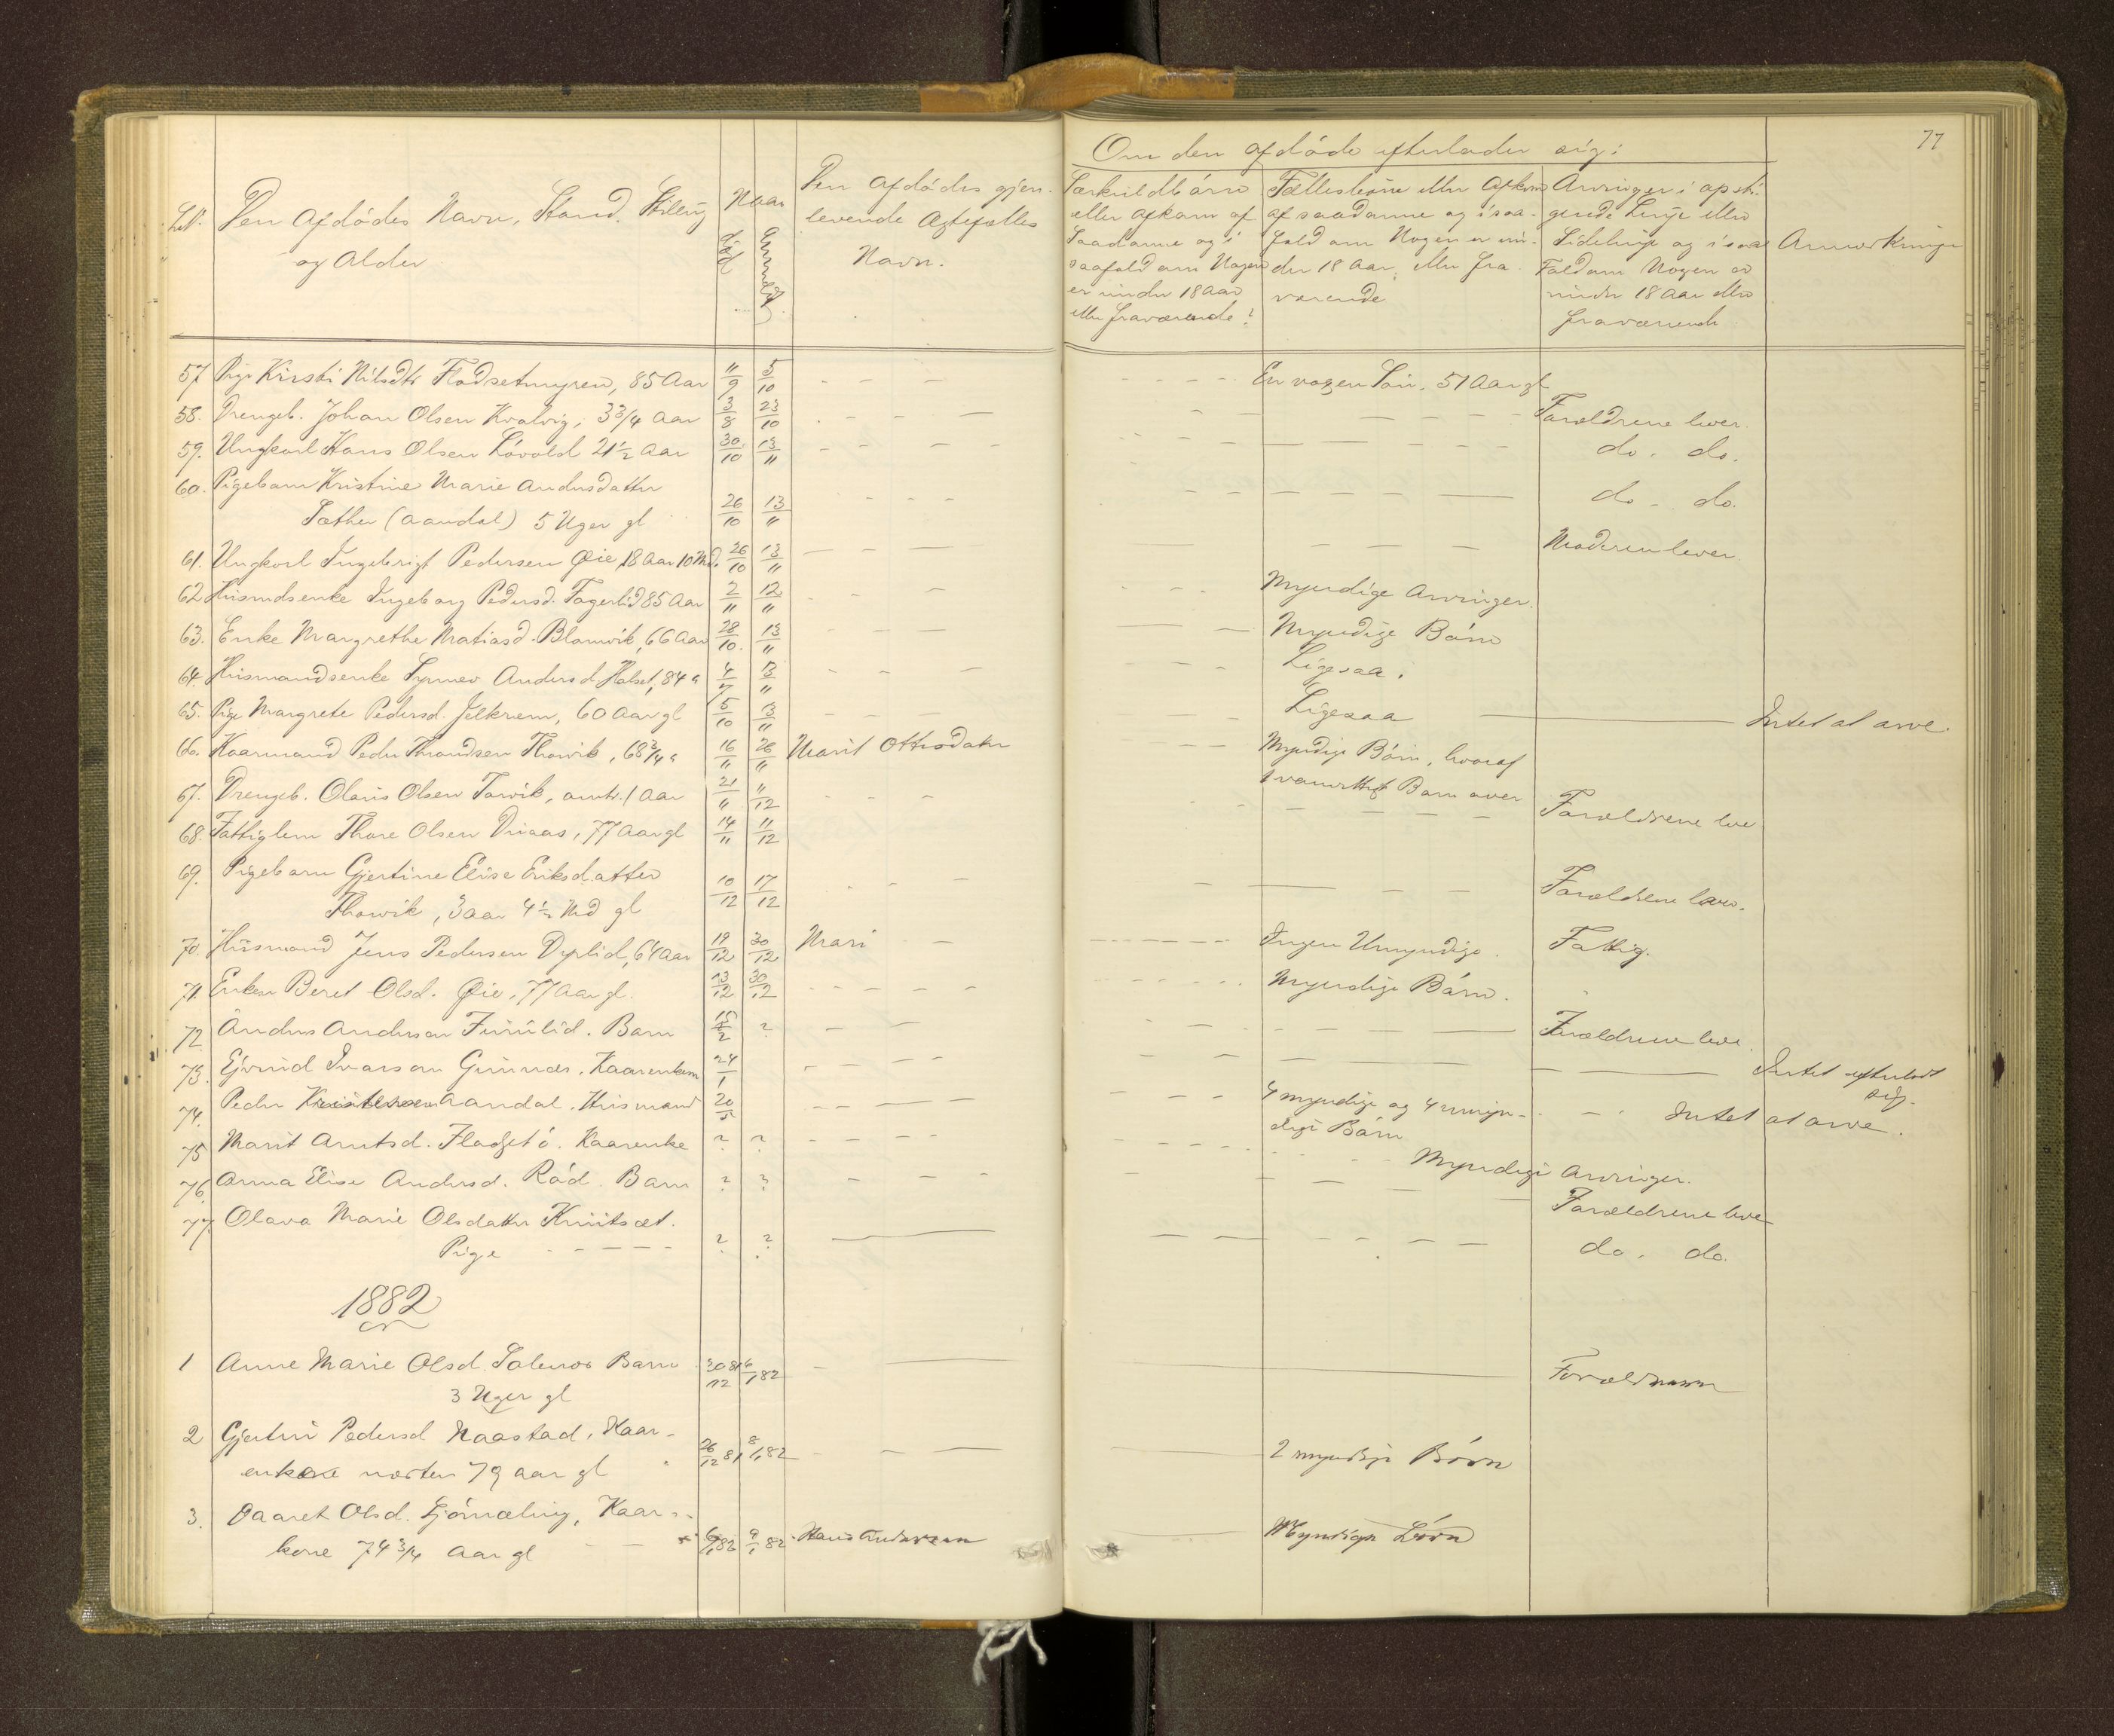 77
Om den afdöde efterlader sig:
L.N. Den Afdödes Navn, Stand, Stilling
og Alder
Naar
död
anmeldt
Den Afdödes gjen-
levende Ægtefælles
Navn.
Særkuldbörn
eller Afkom af
Saadanne og i
saafald om Nogen
er under 18 Aar
eller fraværende?
Fællesbörn eller Afkom
af saadanne og i saa-
fald om Nogen er un-
der 18 Aar eller fra-
værende
Arvinger i opsti-
gende Linje eller
Sidelinje og i saa
Fald om Nogen er
under 18 Aar eller
fraværende
Anmærkninger
57 Pige Kirsti Nilsdtr Flodsetmyren, 85 Aar 11/9 5/10 - - - En voxen Sön, 51 Aar gl
58. Drengeb. Johan Olsen Kvalvig, 3 3/4 Aar 3/8 23/10 - - - Forældrene lever.
59. Ungkarl Hans Olsen Lövold 21 1/2 Aar 30/10 13/11 - - - do. do.
60. Pigebarn Kristine Marie Andersdatter
Sæther (Aandal) 5 Uger gl 26/10 13/11 - - - do - do.
61. Ungkarl Ingebrigt Pedersen Øie 18 Aar 10 Md. 26/10 13/11 - - - Moderen lever
62 Husmdsenke Ingeborg Pedersd. Fagerlid 85 Aar 2/11 12/11 - - - Myndige Arvinger.
63. Enke Margrethe Matiasd. Blamvik, 66 Aar 28/10. 13/11 - - - Myndige Börn
64. Husmandsenke Synnev Andersd. Halset, 84 a 4/7 13/11 - - - Ligesaa.
65. Pige Margrete Pedersd. Jelkrem, 60 Aar gl 5/10 13/11 - - - Ligesaa Intet at arve.
66. Kaarmand Peder Throndsen Thorvik, 68 3/4 a 16/11 26/11 Marit Ottesdatr Myndige Börn, hvoraf
1 Barn
67. Drengeb. Olaus Olsen Torvik, omtr. 1 Aar 21/11 11/12 - - - Forældrene leve
68. Fattiglem Thore Olsen 77 Aar gl 14/11 11/12
69. Pigebarn Gjertine Elise Eriksdatter
Thorvik, 3 Aar 4 1/2 Md gl 10/12 17/12 - - - Forældrene leve.
70. Husmand Jens Pedersen Dyrlid, 64 Aar 19/12 30/12 Mari - Ingen Umyndige. Fattig.
71. Enken Beret Olsd. Øie, 77 Aar gl. 13/12 30/12 - - - Myndige Börn.
72. Anders Andersen Furulid. Barn 15/2 ? - - Forældrene leve.
73. Ejvind Ivarsen Gunnæs. Kaarenkem 24/1 - - - Intet efterladt
sig.
74. Peder Aandal. Husmand 20/5 - - - 4 myndige og 4 umyn-
dige Börn - - Intet at arve.
75 Marit Arntsd. Kaarenke ? ? - - - Myndige Arvinger.
76. Anna Elise Andersd. Röd. Barn ? ? - - - Forældrene leve
77. Olava Marie Olsdatter
Pige - - - - - ? ? - - - do. do.
1882
1 Anne Marie Olsd. Barn 30/12 81 6/1 82 - Forældrene
3 Uger gl
2 Gjertru Pedersd Naastad, Kaar-
enke næsten 79 Aar gl 26/12 81 8/1 82 - - - 2 myndige Börn
3. Baaret Olsd. Kaar-
kone 74 3/4 Aar gl - - 6/1 82 9/1 82 Hans Andersen Myndige Börn